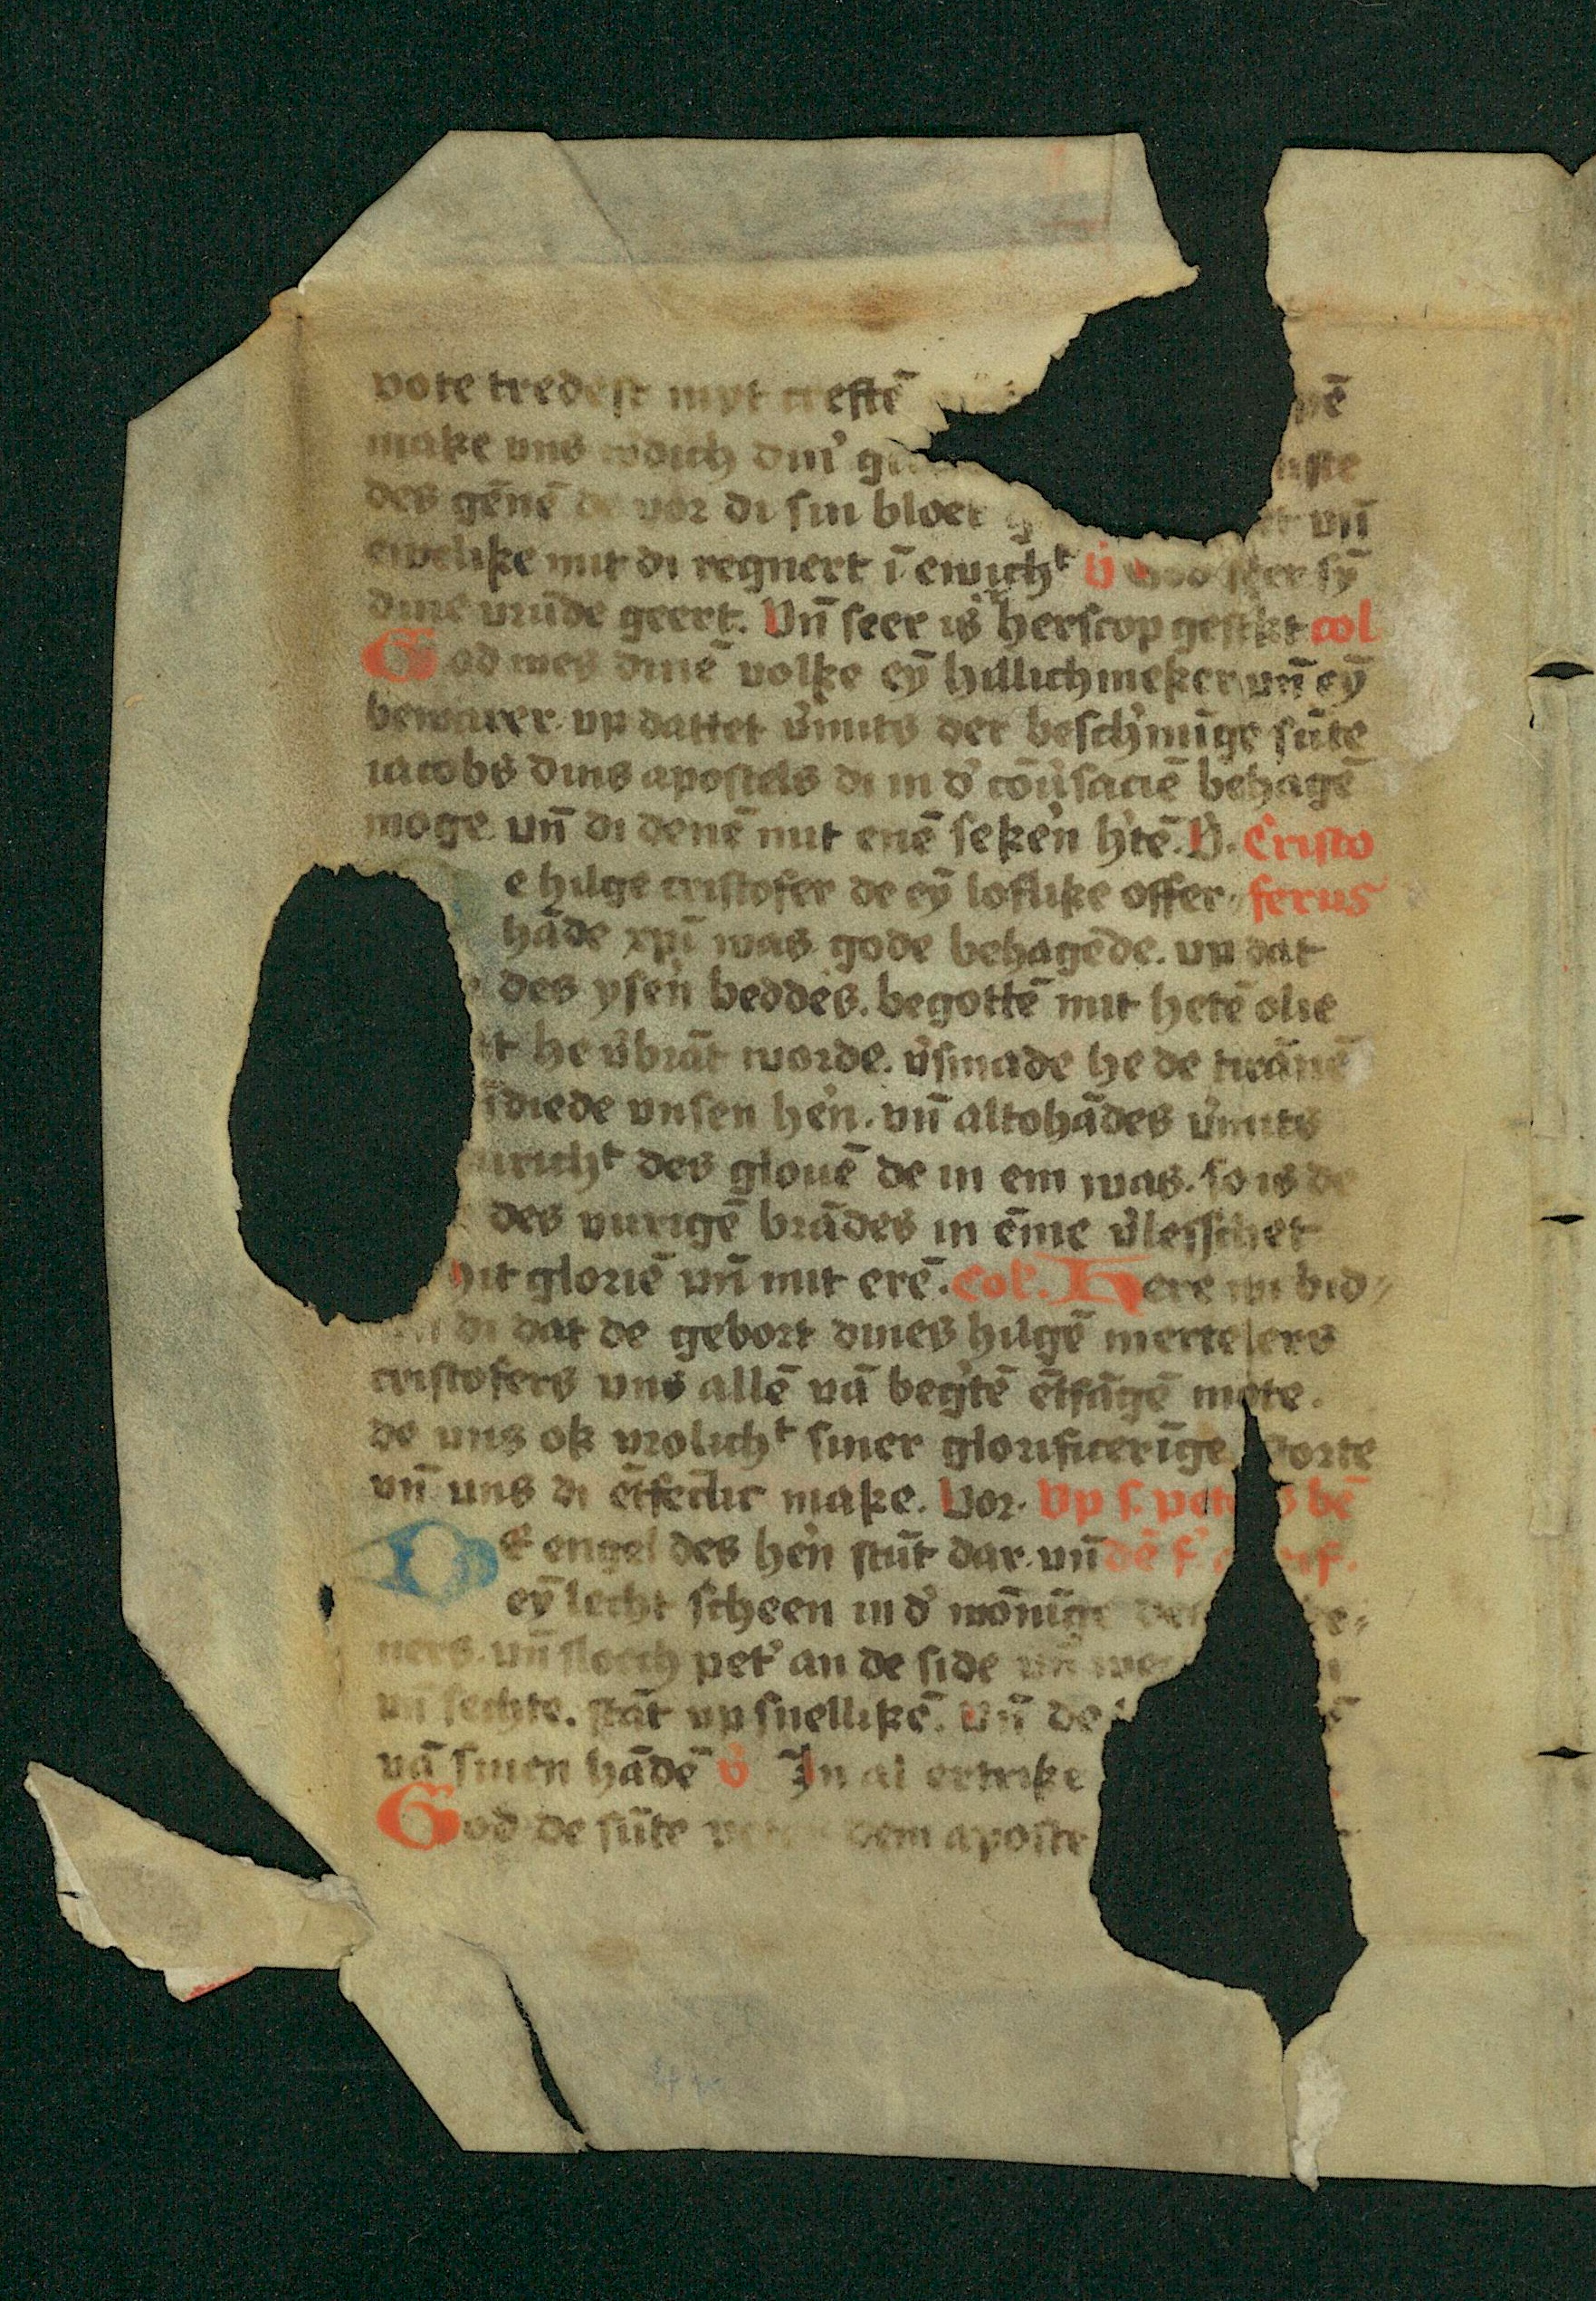 vote tredest myt creftē pē
make vns w'dich din' g iste
des gēnē de vor di sin bloet g et vn̄
ewelike mit di regnert ī ewich^t v̇ god seer sȳ
dine vrūde geert. Vn̄ seer is h'erscop gestk't col
God wes dinē volke eȳ hillichmeker vn̄ eȳ
bewarer. vp dattet v'mits der besch'mīge sūte
iacobs dins apostels di in d' cōu'saciē behagē
moge vn̄ di denē mit enē seke'n h'tē. V̇. Cristo
e hilge cristofer de eȳ loflike offer. ferus
hāde xp̄i was gode behagēde. vp dat
e des yse'n beddes. begottē mit hetē olie
t he v'brāt worde. v'smade he de tirānē
īdiede vnsen he'n. vn̄ altohādes v'mits
uricht des glouē de in em was. so is de
des vurigē brādes in ēme v'lesschet
mit gloriē vn̄ mit erē. Col. Here wi bid⸗
di dat de gebort dines hilgē mertelers
cristofers vns allē vā beg'tē ētfāgē mote.
de vns ok vrolich^t siner glorificerīge vorte
vn̄ vns di ētfēclic make. Vor. Vp s. pet s bē
De engel des he'n stūt dar. vn̄ dē s'
eȳ lecht scheen in d' wōnīge des ke⸗
ners. vn̄ sloech pet' an de side vn̄ we
vn sechte. stāt vp snellikē. Vn̄ de ē
vā sinen hādē v̇ In al ertrike
God de sūte peter dem aposte